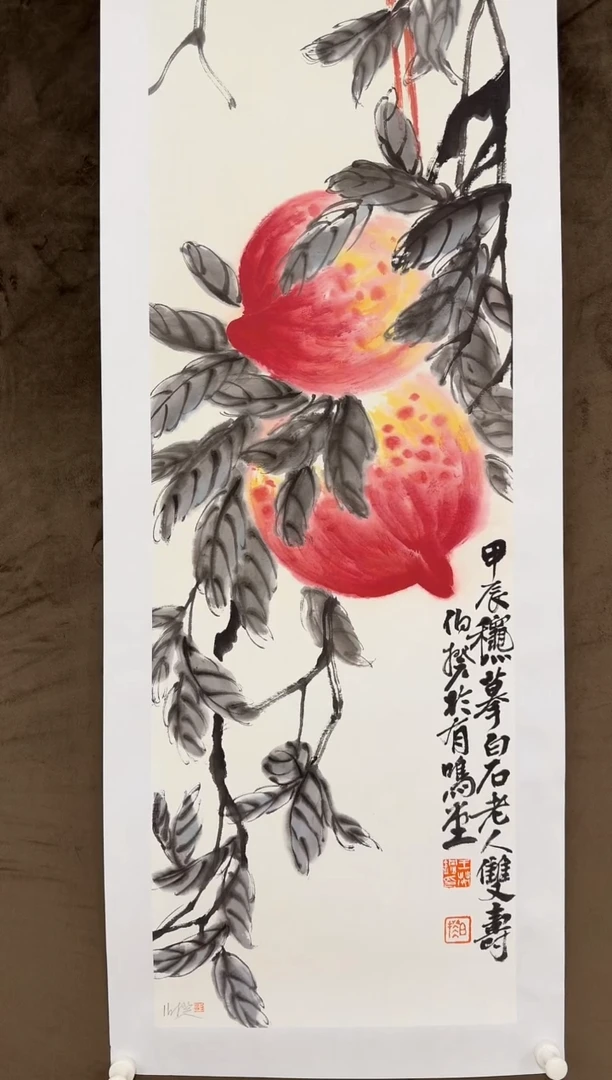 甲辰龝摹白石老人雙壽
伯揆於有鳴堂